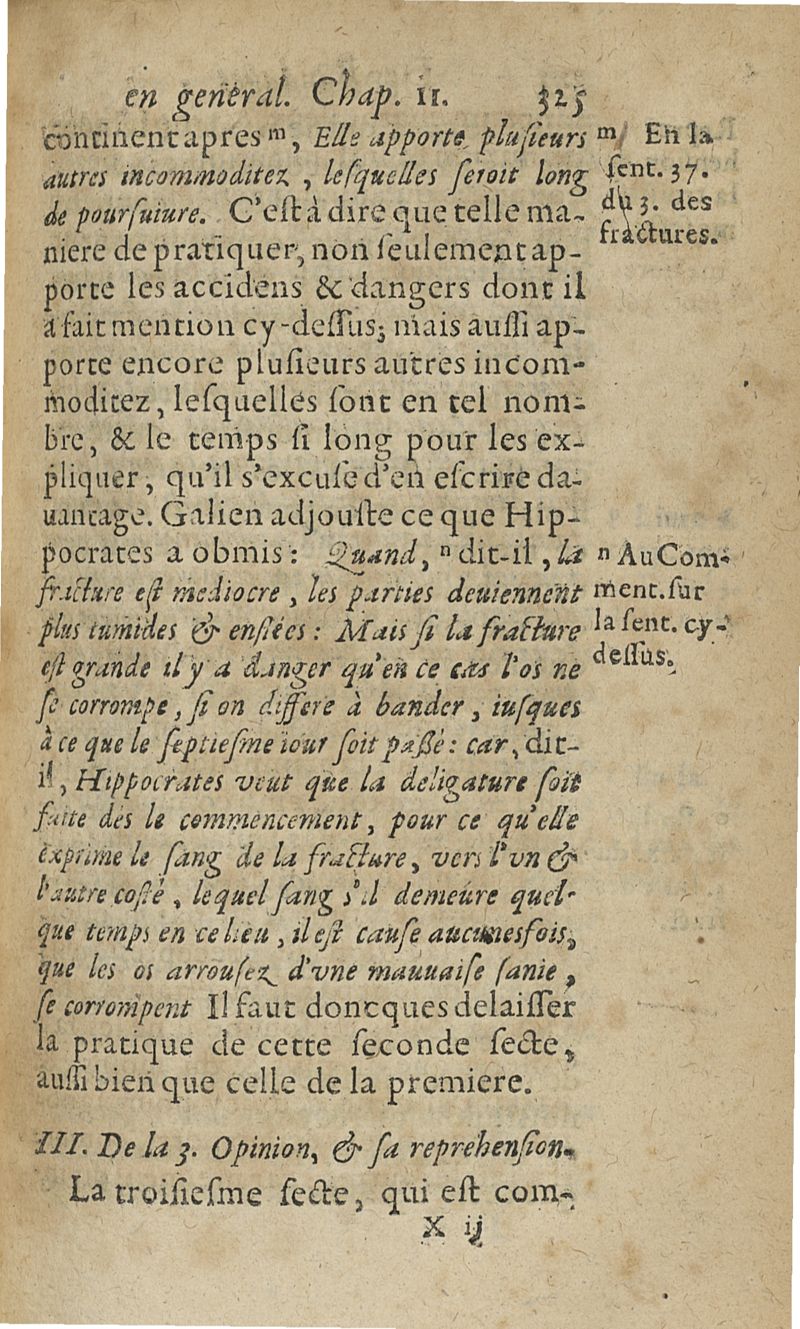 en general. Chap. II. 325
continent apres ᵐ, Elle apporte pluſieurs
autres incommoditez, leſquelles ſeroit long
de pourſuiure. C'eſt à dire que telle ma-
niere de pratiquer, non ſeulement ap-
porte les accidens & dangers dont il
a fait mention cy-deſſus; mais auſſi ap-
porte encore pluſieurs autres incom-
moditez, leſquelles ſont en tel nom-
bre, & le temps ſi long pour les ex-
pliquer, qu'il s'excuſe d'en eſcrire da-
uantage. Galien adjouſte ce que Hip-
pocrates a obmis: Quand, ⁿ dit-il, la
fracture eſt mediocre, les parties deuiennent
plus tumides & enflées: Mais ſi la fracture
eſt grande il y a danger qu'en ce cas l'os ne
ſe corrompe, ſi on differe à bander, iuſques
à ce que le ſeptieſme iour ſoit paſſé: car, dit-
il, Hippocrates veut que la deligature ſoit
faite dés le commencement, pour ce qu'elle
exprime le ſang de la fracture, vers l'vn &
l'autre coſté, lequel ſang s'il demeure quel-
que temps en ce lieu, il eſt cauſe aucunesfois,
que les os arrouſez d'vne mauuaiſe ſanie,
ſe corrompent Il faut doncques delaiſſer
la pratique de cette ſeconde ſecte,
auſſi bien que celle de la premiere.
III. De la 3. Opinion, & ſa reprehenſion.
La troiſieſme ſecte, qui eſt com-
X ij
ᵐ En la
ſent. 37.
du 3. des
fractures.
ⁿ Au Com-
ment. ſur
la ſent. cy-
deſſus.